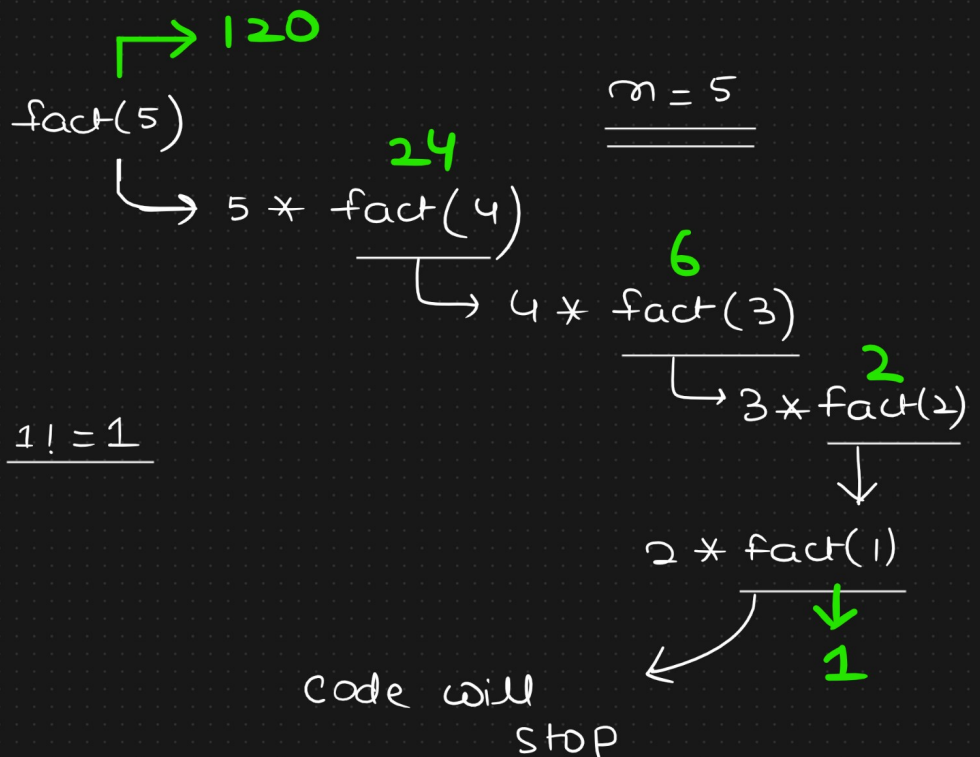 120
fact(5)
n = 5
24
5 * fact(4)
6
4 * fact(3)
2
3 * fact(2)
1! = 1
2 * fact(1)
1
code will
stop